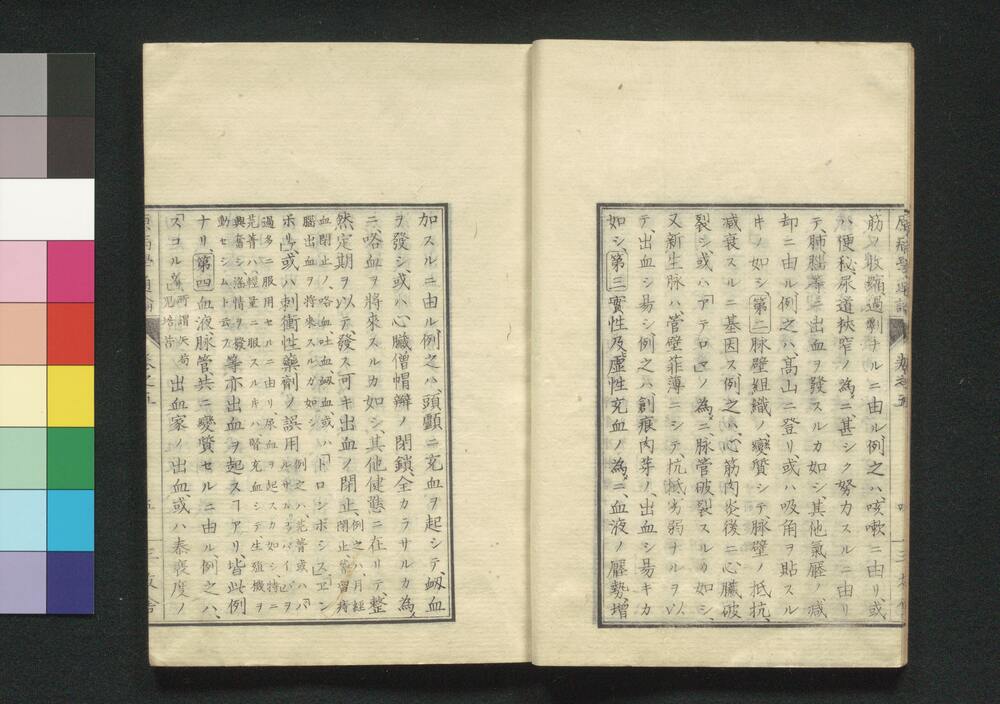 筋ノ收縮過劇ナルニ由ル例之ハ咳嗽ニ由リ、或
ハ便秘、尿道狹窄ノ為ニ、甚シク努力スルニ由リ
テ、肺腦等ニ出血ヲ發スルカ如シ、其他氣壓ノ減
却ニ由ル例之ハ、高山ニ登リ、或ハ吸角ヲ貼スル
キノ如シ第二脉壁組織ノ變質シテ脉壁ノ抵抗、
減衰スルニ基因ス例之ハ心筋肉炎後ニ心臓破
裂シ、或ハ「アテロマ」ノ為ニ脉管破裂スルカ如シ、
又新生脉ハ管壁菲薄ニシテ、抗抵劣弱ナルヲ以
テ、出血シ易シ、例之ハ創痕肉芽ノ出血シ易キカ
如シ第三實性及虛性充血ノ為ニ、血液ノ壓勢、增
加スルニ由ル例之ハ、頭顱ニ充血ヲ起シテ、衂血
ヲ發シ、或ハ心臓僧帽瓣ノ閉鎖、全カラサルカ為
ニ、咯血ヲ將來スルカ如シ、其他健態ニ在リテ、整
然定期ヲ以テ、發ス可キ出血ノ閉止、例之ハ月經閉止、管溜痔
血閉止ノ咯血吐血衂血或ハ「トロンボシス」「エン
腦出血ヲ將來スルカ如シ
ボリ」或ハ刺衝性藥劑ノ誤用
過多ニ服用セルニ由リ、尿血ヲ起スカ如シ特ニ
芫菁ハ、輕量ニ服スルキハ腎充血シテ生殖機ヲ
興奮シ、淫情ヲ發
動セシムト云フ
等亦出血ヲ起スヿアリ、皆此例
ナリ、第四血液、脉管、共ニ變質セルニ由ル、例之ハ、
「スコルブ 出血家ノ出血或ハ泰褒度ノ